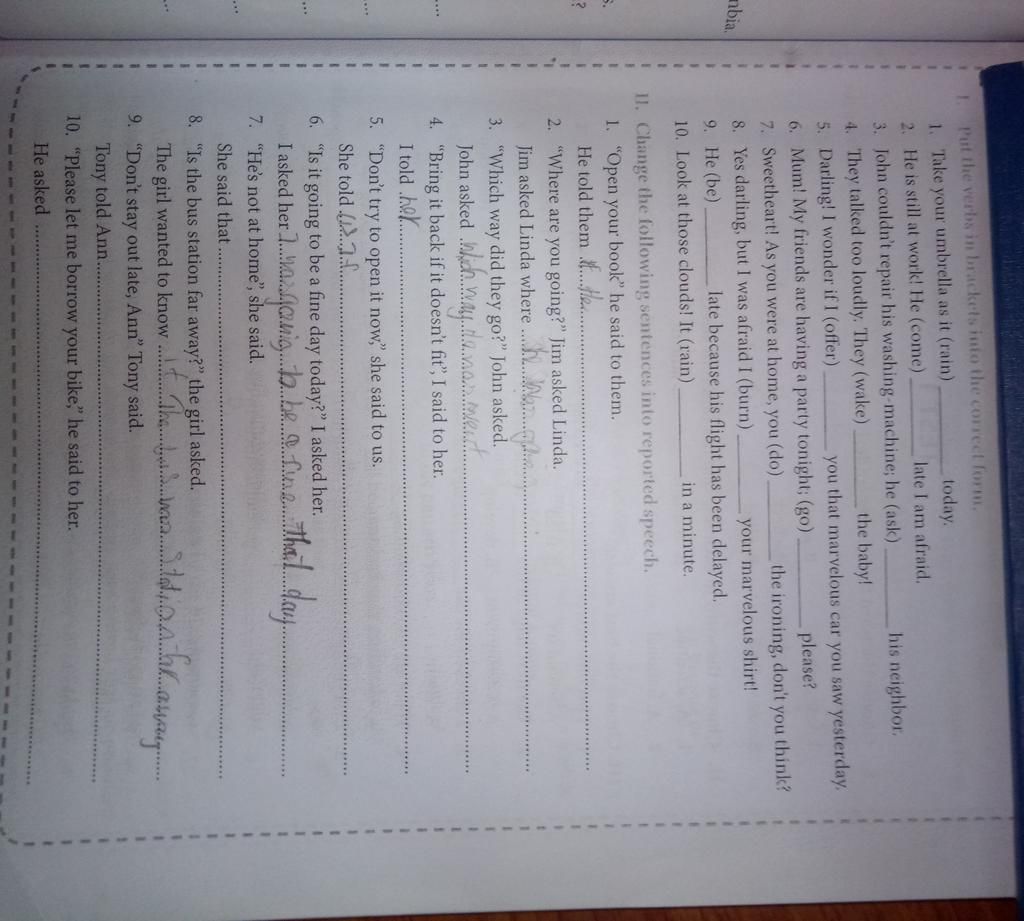 nbia.
I. Put the verbs in brackets into the correct form.
1. Take your umbrella as it (rain) ________ today.
2. He is still at work! He (come) ________ late I am afraid.
3. John couldn't repair his washing-machine; he (ask) ________ his neighbor.
4. They talked too loudly. They (wake) ________ the baby!
5. Darling! I wonder if I (offer) ________ you that marvelous car you saw yesterday.
6. Mum! My friends are having a party tonight; (go) ________ please?
7. Sweetheart! As you were at home, you (do) ________ the ironing, don't you think?
8. Yes darling, but I was afraid I (burn) ________ your marvelous shirt!
9. He (be) ________ late because his flight has been delayed.
10. Look at those clouds! It (rain) ________ in a minute.
II. Change the following sentences into reported speech.
1. "Open your book" he said to them.
He told them
2. "Where are you going?" Jim asked Linda.
Jim asked Linda where
3. "Which way did they go?" John asked.
John asked way
4. "Bring it back if it doesn't fit", I said to her.
I told her
5. "Don't try to open it now," she said to us.
She told us if
6. "Is it going to be a fine day today?" I asked her.
I asked her going to be a fine that day
7. "He's not at home", she said.
She said that
8. "Is the bus station far away?" the girl asked.
The girl wanted to know if the bus was away
9. "Don't stay out late, Ann" Tony said.
Tony told Ann
10. "Please let me borrow your bike," he said to her.
He asked